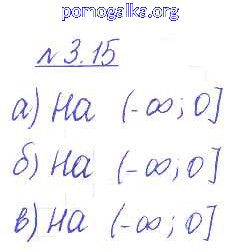 pomogalka.org
№3.15
а) на (-∞; 0]
б) на (-∞; 0]
в) на (-∞; 0]